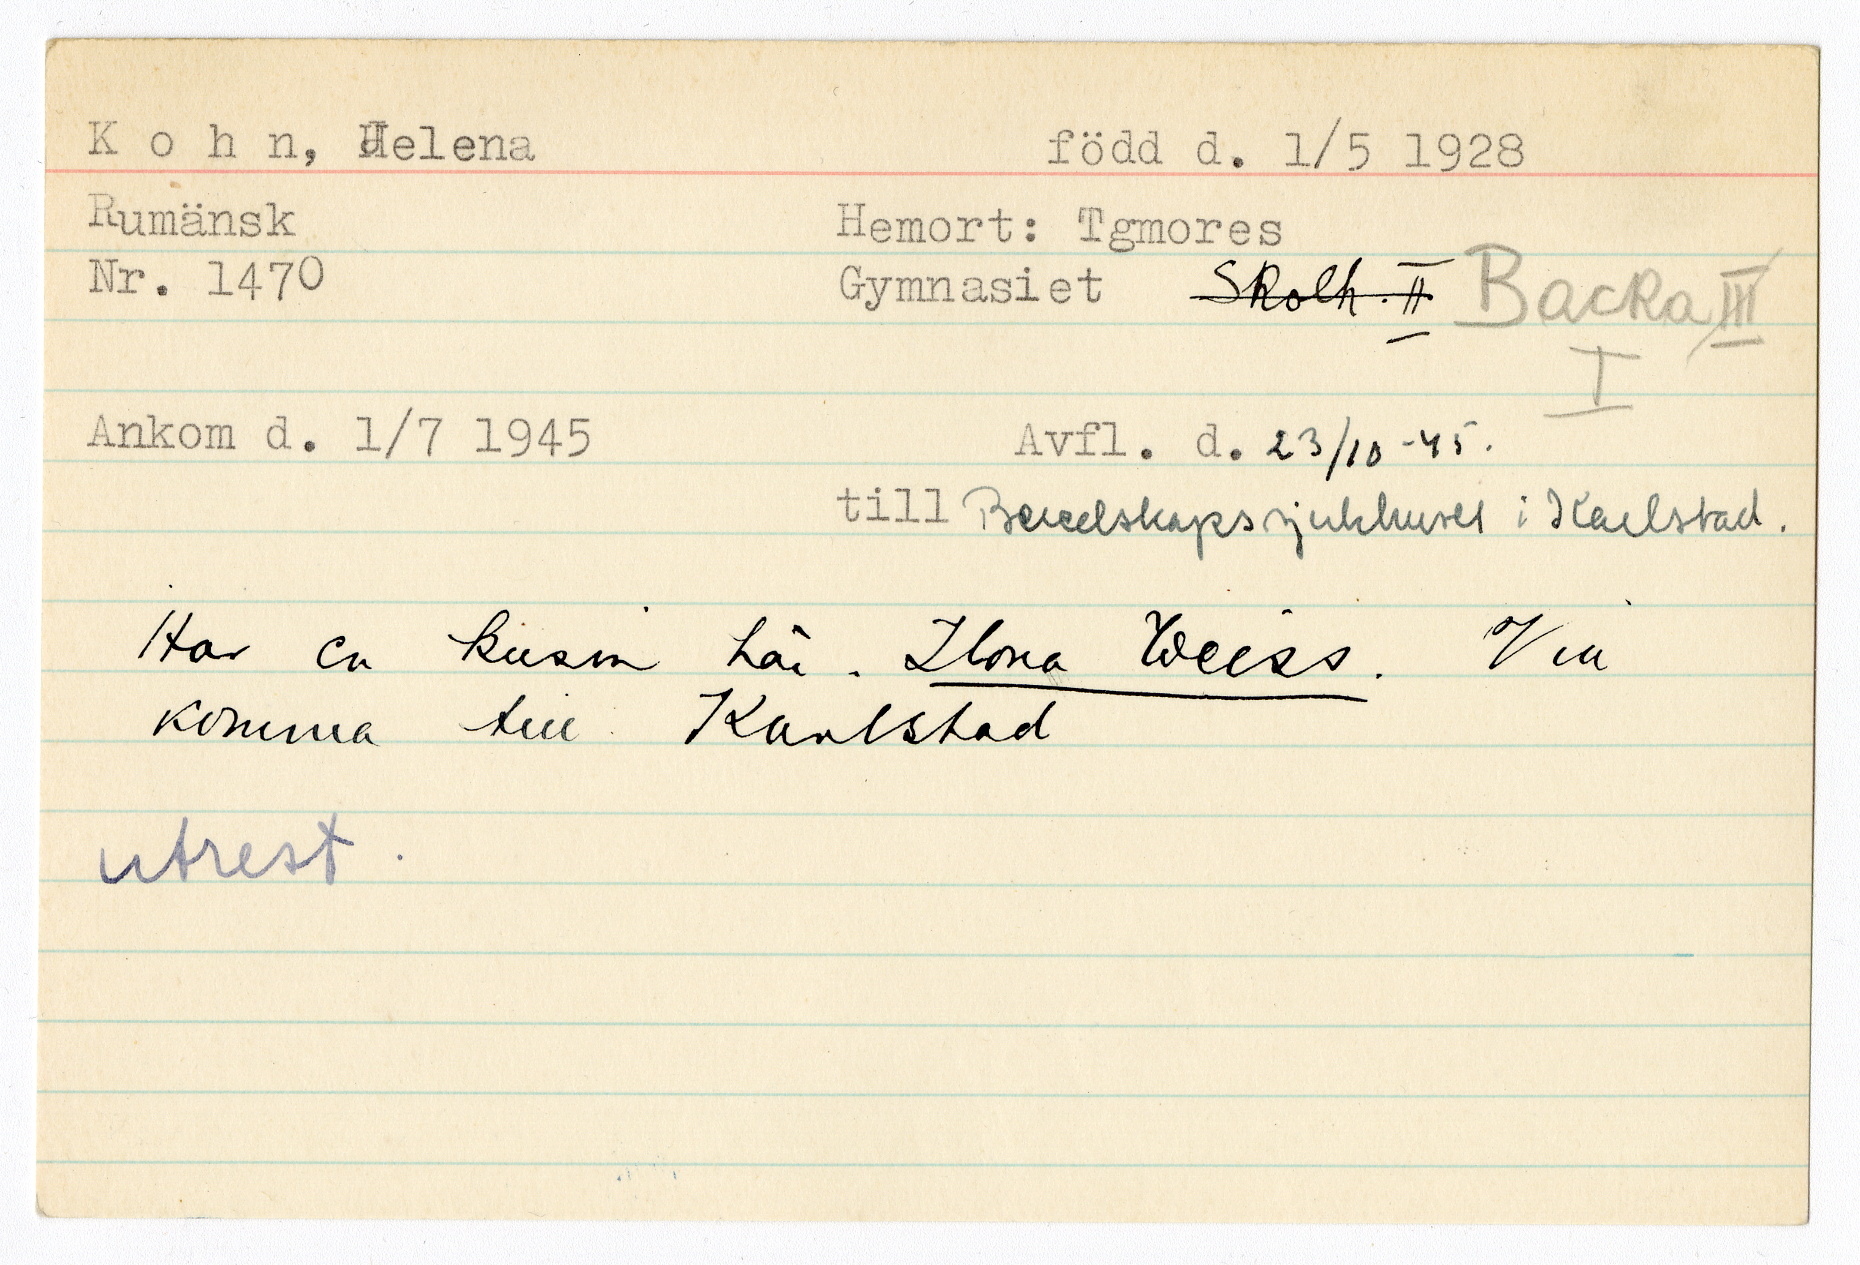 K o h n, Helena född d. 1/5 1928
Rumänsk Hemort: Tgmores
Nr. 1470 Gymnasiet Skolh. II Backa III
I
Ankom d. 1/7 1945 Avfl. d. 23/10 -45.
till Beredskapssjukhuset i Karlstad.
Har en kusin här. Ilona Weiss. Vill
komma till Karlstad
utrest.